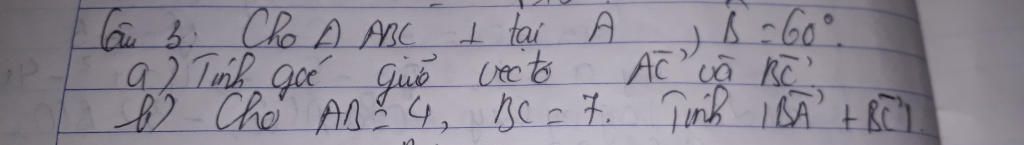 Câu 3: Cho Δ ABC ⊥ tại A, B̂ = 60°.
a) Tính góc giữa vectơ AC⃗ và BC⃗
b) Cho AB = 4, BC = 7. Tính |BA⃗ + BC⃗|.